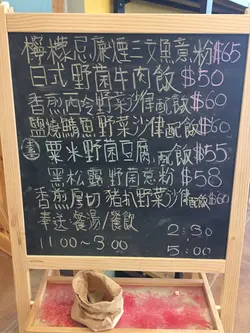 檸檬忌廉煙三文魚意粉 $65
日式野菌牛肉飯 $50
香煎肉 野菜沙律配飯 $60
鹽燒鯖魚野菜沙律配飯 $60
素 粟米野菌豆腐配飯 $55
黑松露野菌意粉 $58
香煎厚切豬扒野菜沙律配飯 $60
奉送餐湯/餐飲
11:00~3:00
2:30
5:00